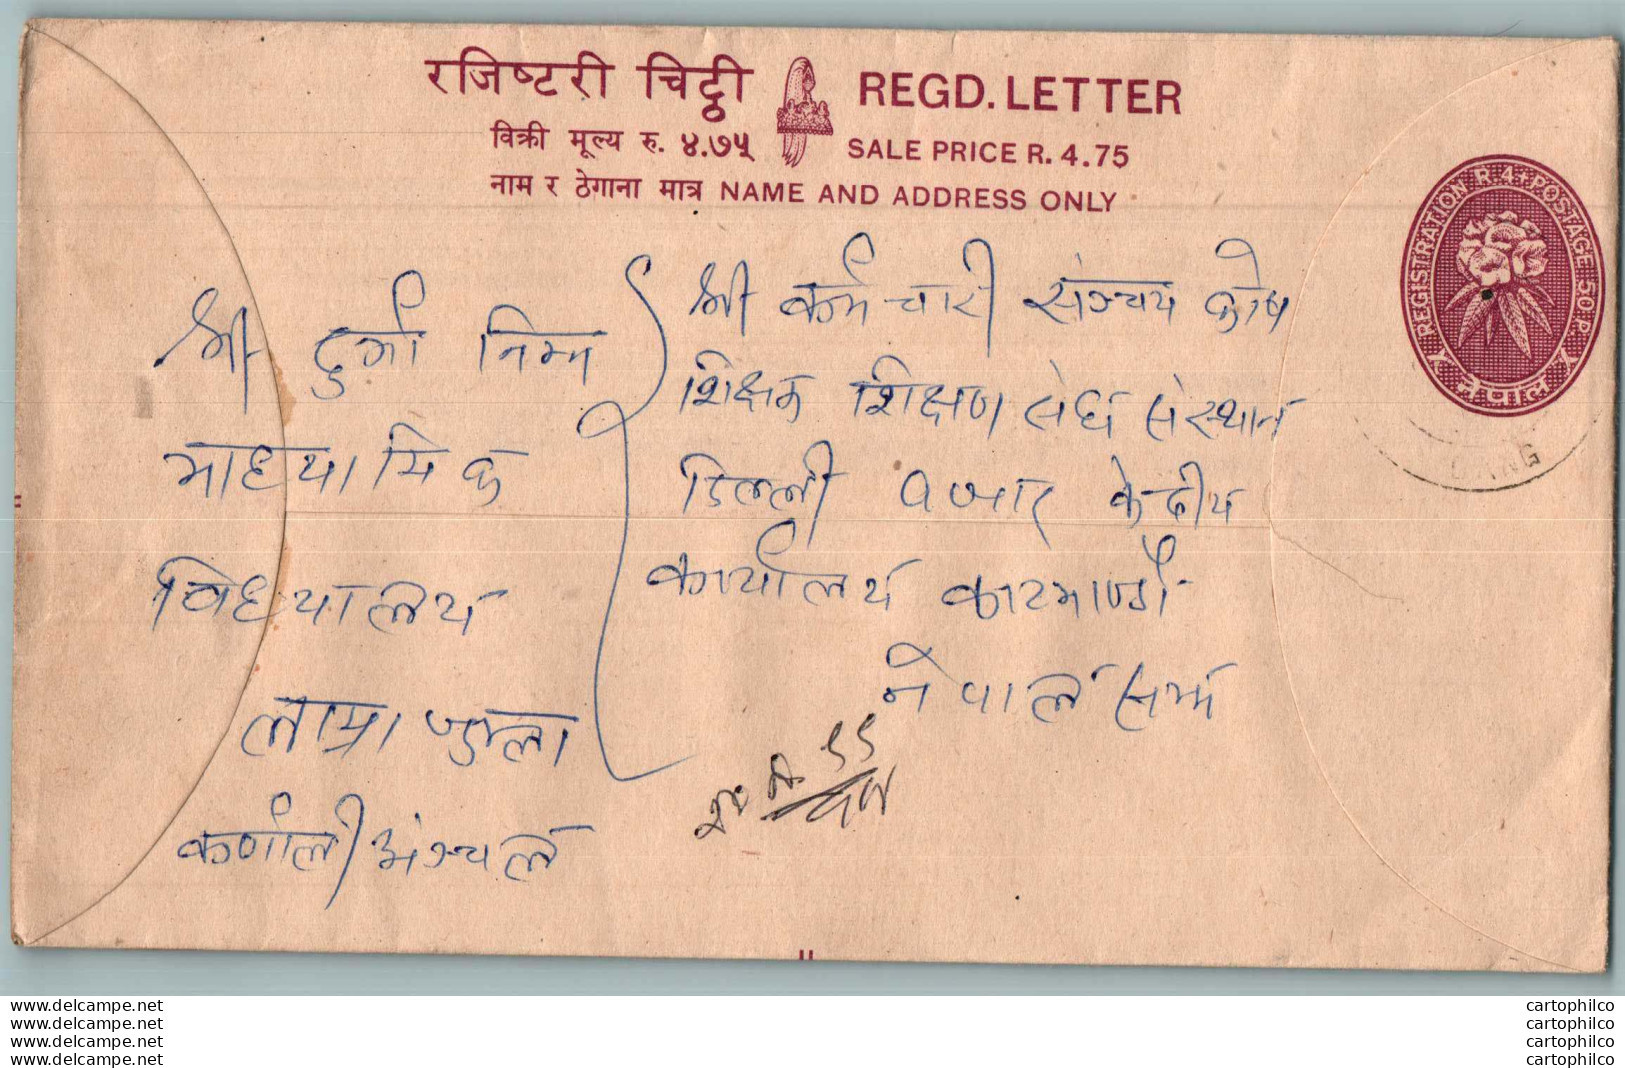 रजिष्टरी चिट्ठी REGD. LETTER
विक्री मूल्य रु. ४.७५ SALE PRICE R. 4.75
नाम र ठेगाना मात्र NAME AND ADDRESS ONLY
REGISTRATION R. 4+POSTAGE 50 P.
नेपाल
श्री दुर्गा निम्न
माध्यामिक
विध्यालय
लाम्रा जुम्ला
कर्णाली अंञ्चल
श्री कर्मचारी संञ्चय कोष
शिक्षक शिक्षण संघ संस्थान
डिल्ली बजार केन्द्रीय
कार्यालय काटमाण्डौ
नेपाल
www.delcampe.net
www.delcampe.net
www.delcampe.net
www.delcampe.net
cartophilco
cartophilco
cartophilco
cartophilco